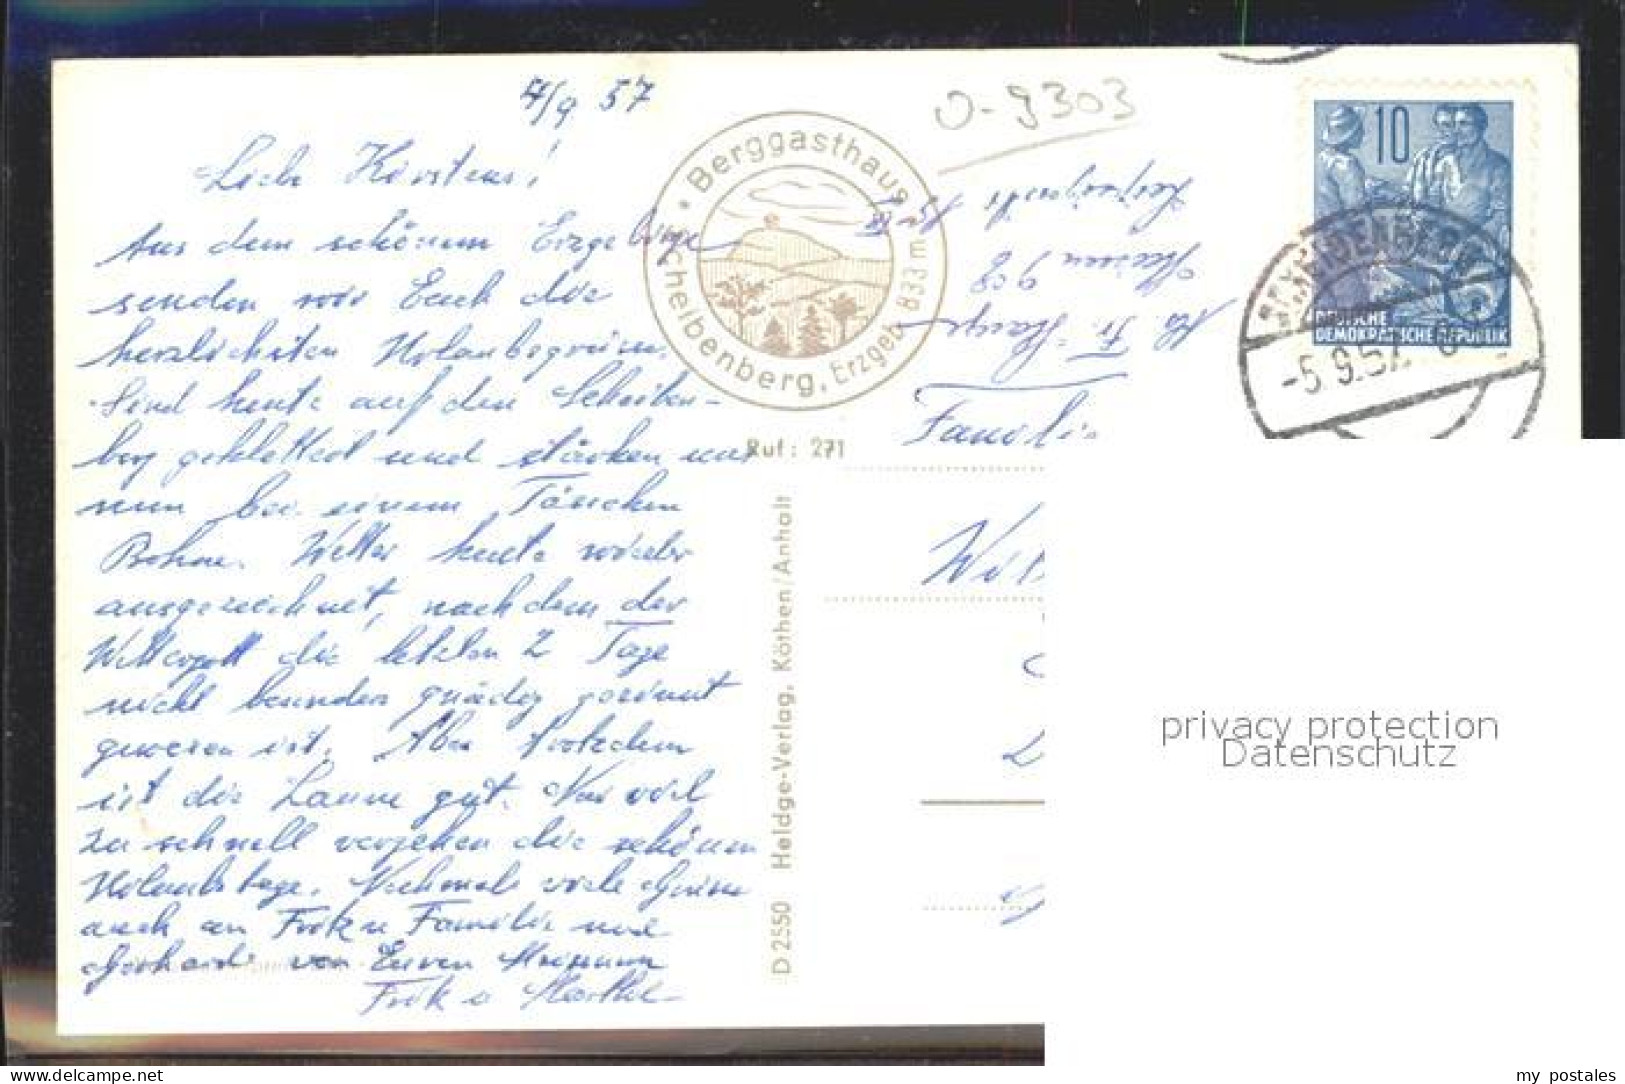 4/9 57
O-9303
Liebe Kirstens!
Aus dem schönen Erzgebirge
senden wir Euch die
herzlichsten Urlaubsgrüsse.
Sind heute auf den Scheiben-
berg geklettert und stärken uns
nun bei einem Tässchen
Bohne. Wetter heute wieder
ausgezeichnet, nachdem der
Wettergott die letzten 2 Tage
nicht besonders gnädig gesinnt
gewesen ist. Aber trotzdem
ist die Laune gut. Nur viel
zu schnell vergehen die schönen
Urlaubstage. Nochmals viele Grüsse
auch an Fritz u Familie und
Gerhard von Euren
Fritz u Marthe
Berggasthaus
Scheibenberg, Erzgeb. 833 m
Ruf: 271
D 2550 Heldge-Verlag, Köthen/Anhalt
Ab. Fr.
908
Familie
10
DEUTSCHE
DEMOKRATISCHE REPUBLIK
SCHEIBENBERG
-5.9.57
privacy protection
Datenschutz
my postales
delcampe.net/lat